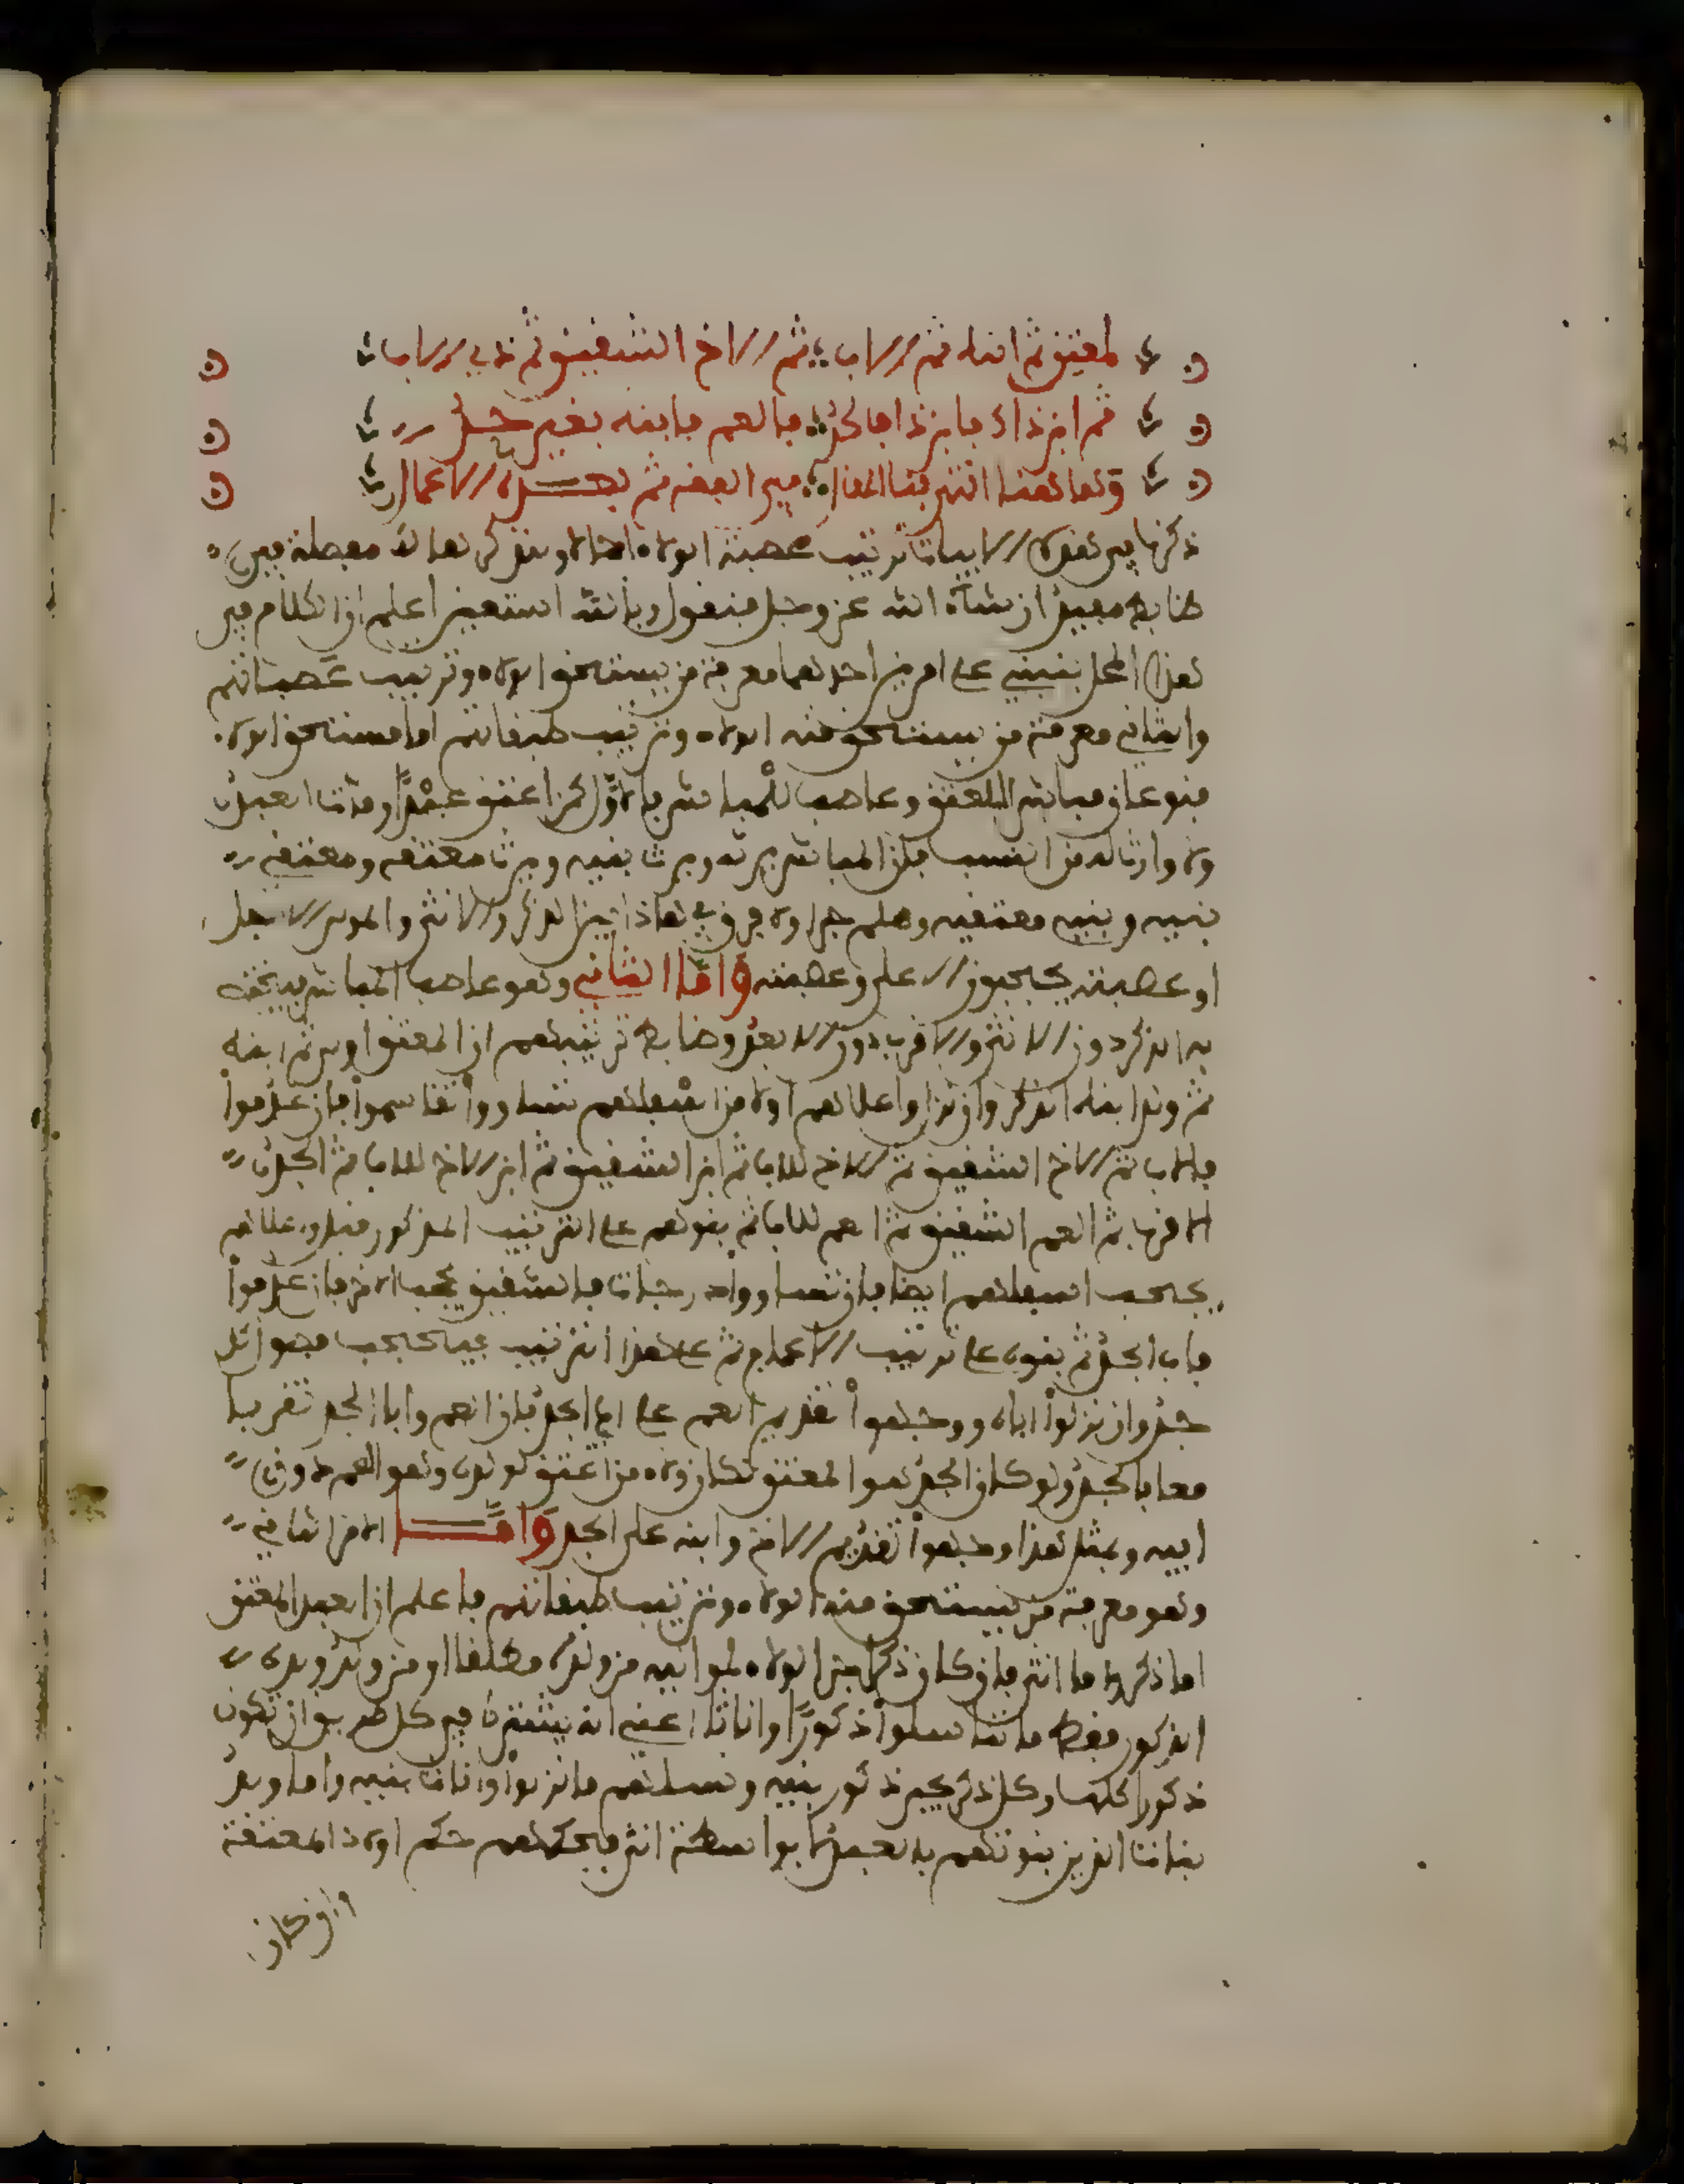 لمعتق ثم ابنه ثم الاب ثم الاخ الشقيق ثم ذي الاب
ثم ابن ذا وذ فابن ذا فالجد فالعم فابنه بغير حد
وهاهنا انتهى بنا المقال في الفقه ثم بعده الاعمال
ذكر في هذه الابيات ترتيب عصبة الولاء اجمالا ونذكر هالك مفصلة في
ضابط مفيد ان شاء الله عز وجل فنقول وبالله استعين اعلم ان الكلام في
هذا المحل ينبني على امرين احدهما معرفة من يستحق الولاء وترتيب عصباتهم
والثاني معرفة من يستحق منه الولاء وترتيب طبقاتهم اما مستحق الولاء
فنوعان مباشر للعتق وعاصب للمباشر فالاول كمن اعتق عبدا ومات العبد
ولا وارث له من النسب فان المباشر يرثه ويرث بنيه ويرث معتقه ومعتق
بنيه وبنيه معتقيه وهلم جرا ولا فرق في هاذا بين الذكر والانثى والمولى الاسفل
او عصبته يحجبون الاعلى وعصبته واما الثاني وهو عاصب المباشر فيختص
به الذكر دون الانثى والاقرب دون الابعد وضابط ترتيبهم ان المعتق اولى ثم ابنه
ثم ولد ابنه الذكر وان نزل واعلاهم اولى من اسفلهم تساووا تقاسموا فان عدموا
فالاب ثم الاخ الشقيق ثم الاخ للاب ثم ابن الشقيق ثم ابن الاخ للاب ثم الجد
الاقرب ثم العم الشقيق ثم العم للاب ثم بنوهم على الترتيب المذكور قبل وعلاهم
يحجب اسفلهم ايضا فان تساووا درجات فالشقيق يحجب الاخر فان عدموا
فاب الجد ثم بنوه على ترتيب الاعمام ثم على هذا الترتيب فيما يحجب فهو ابن
جد وان نزلوا اباه ووجهوا تقديم العم على اب الجد بان العم وابا الجد تقربا
معا بالجد ولو كان الجد هو المعتق لكان ولاء من اعتق لولده وهو العم دون
ابيه وبمثل هذا وجهوا تقديم الاخ وابنه على الجد واما الامر الثاني
وهو معرفة من يستحق منه الولاء وترتيب طبقاتهم فاعلم ان العبد المعتق
اما ذكر واما انثى فان كان ذكرا جر الولاء لمواليه من ولده مطلقا او من ولد ولده
الذكور فقط ما تناسلوا ذكورا واناثا اعني انه يشترط في كل طريق ان تكون
ذكورا كلها وكل ذكر يجر ذكور بنيه ونسلهم ما نزلوا واناث بنيه واما ولد
بناته الذين بنوتهم بالعبد بواسطة انثى فحكمهم حكم اولاد المعتقة
وان كان